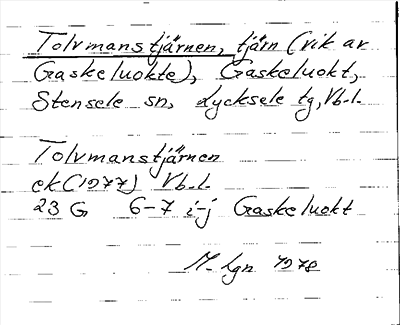 Tolvmanstjärnen, tjärn (vik av
Gaskeluokte), Gaskeluokt,
Stensele sn, Lycksele tg, Vb.l.
Tolvmanstjärnen
ek (1977) Vb.l.
23 G 6-7 i-j Gaskeluokt
M. Lgn 1978